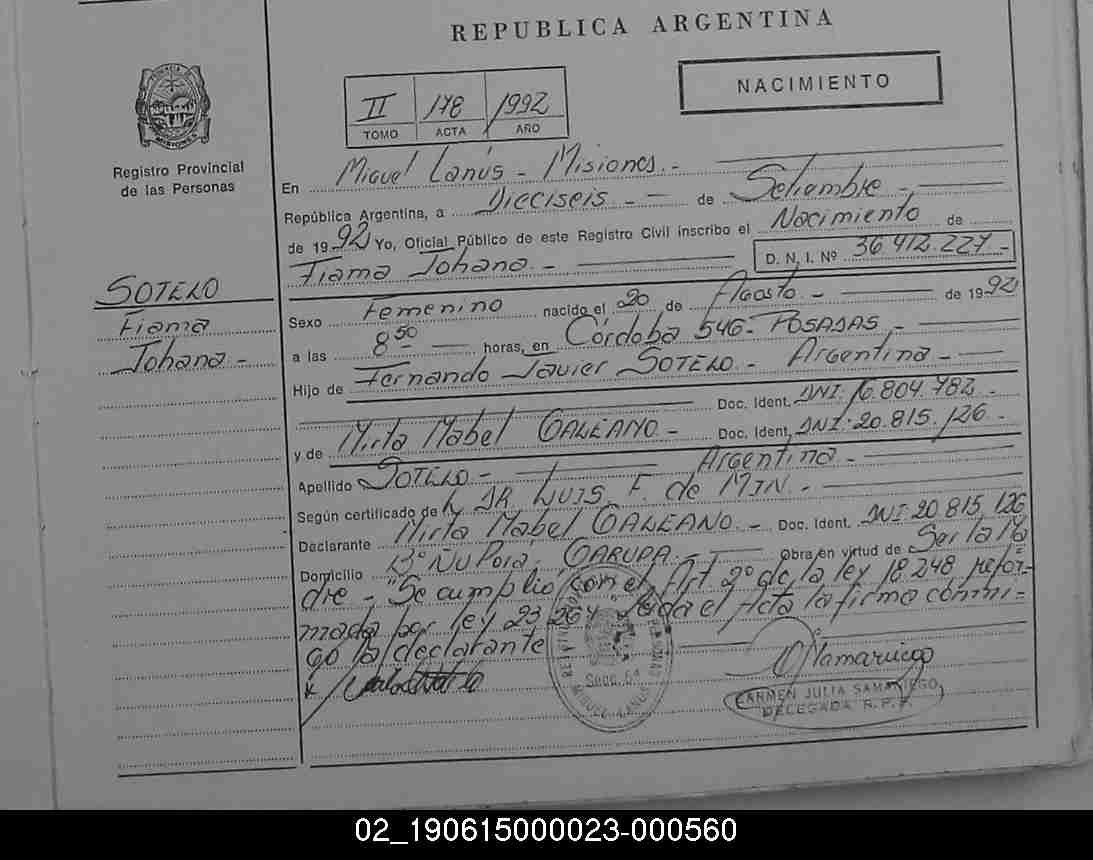 REPUBLICA ARGENTINA
NACIMIENTO
II 178 1992
TOMO ACTA AÑO
Registro Provincial
de las Personas
En Miguel Lanús - Misiones.-
República Argentina, a Dieciseis.- de Setiembre.-
de 1992 Yo, Oficial Público de este Registro Civil inscribo el Nacimiento de
Fiama Johana.- D. N. I. Nº 36.412.227-
SOTELO
Fiama
Johana-
Sexo Femenino nacido el 20 de Agosto.- de 1992
a las 8 50 horas, en Córdoba 546- POSADAS.-
Hijo de Fernando Javier SOTELO.- Argentina-
Doc. Ident. DNI: 16.804.782-
y de Mirta Mabel GALEANO- Doc. Ident. DNI: 20.815.126-
Apellido SOTELO- Argentina.-
Según certificado de DR. LUIS. F. de
Declarante Mirta Mabel GALEANO.- Doc. Ident. DNI: 20.815.126
Domicilio Bº Ñu Porá. GARUPA.- Obra en virtud de Ser la Ma
dre-, "Se cumplio con el Art. 2º de la ley 18.248 refor-
mada por ley 23.264 el Acta la firma conmi-
go la declarante
MIGUEL LANUS
CARMEN JULIA SAMANIEGO
DELEGADA R. P. P.
02_190615000023-000560